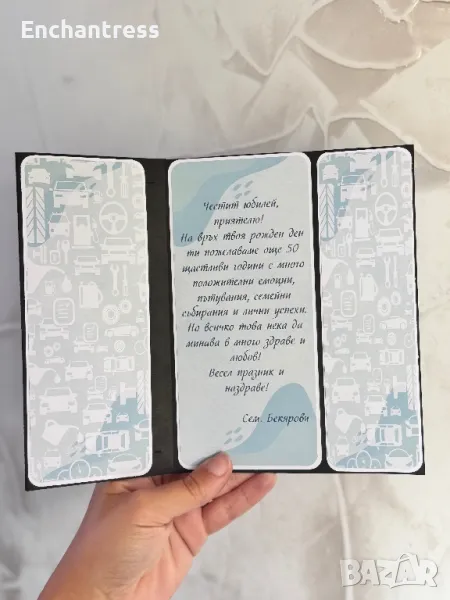 Enchantress
Честит юбилей,
приятелю!
На връх твоя рожден ден
ти пожелаваме още 50
щастливи години с много
положителни емоции,
пътувания, семейни
събирания и лични успехи.
Но всичко това нека да
минава в много здраве и
любов!
Весел празник и
наздраве!
Сем. Бекярови
BAZAR